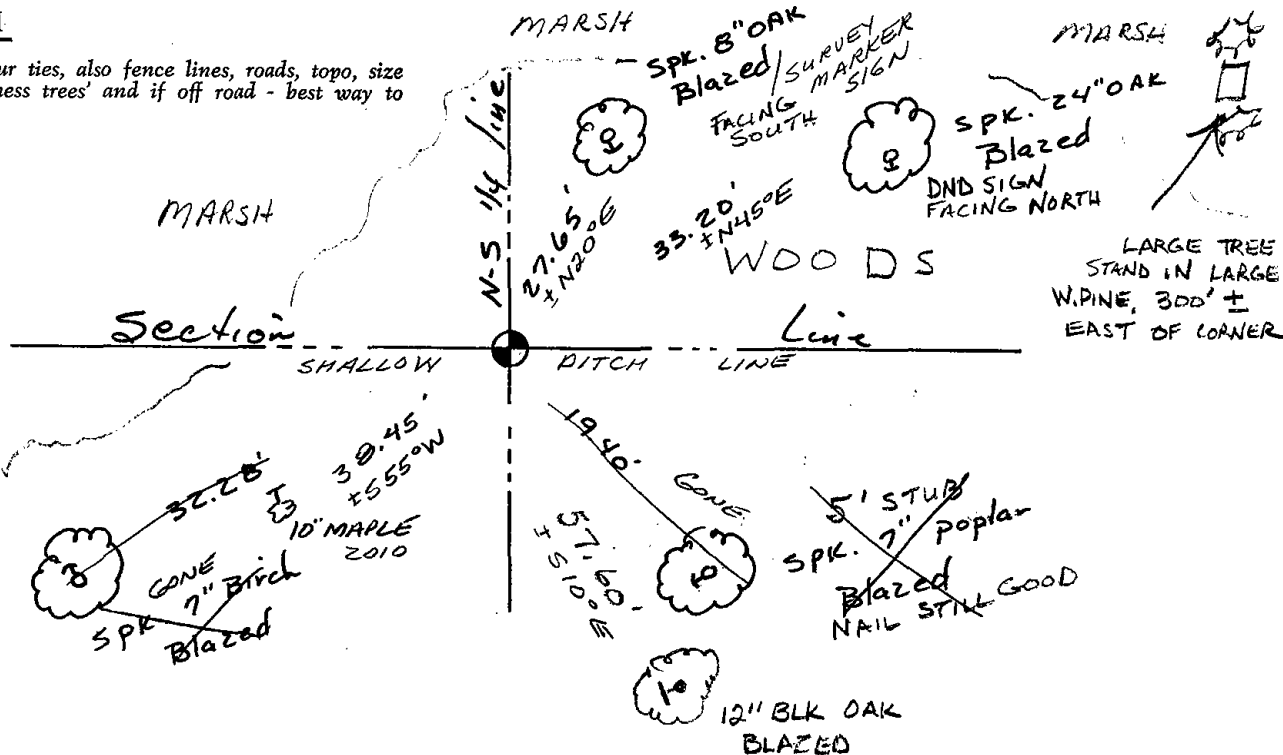 MARSH
ur ties, also fence lines, roads, topo, size
ness trees' and if off road - best way to
Spk. 8" OAK
Blazed / SURVEY
MARKER
SIGN
FACING
SOUTH
MARSH
Spk. 24" OAK
Blazed
DND SIGN
FACING NORTH
MARSH
N-S 1/4 line
27.65'
± N20°E
33.20'
± N45°E
WOODS
LARGE TREE
STAND IN LARGE
W.PINE, 300' ±
EAST OF CORNER
Section Line
SHALLOW DITCH LINE
32.28'
38.45'
± S55°W
10" MAPLE
2010
GONE
7" Birch
Spk
Blazed
19.40'
GONE
57.60'
± S10°E
5' STUB
Spk. 7" poplar
Blazed
NAIL STILL GOOD
12" BLK OAK
BLAZED